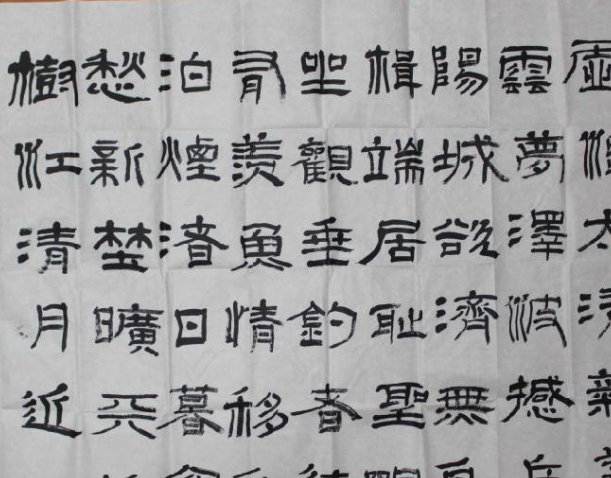 虛混太清氣
雲夢澤波撼
陽城欲濟無
楫端居耻聖
坐觀垂釣者
有羨魚情移
泊煙渚日暮
愁新埜曠天
樹江清月近